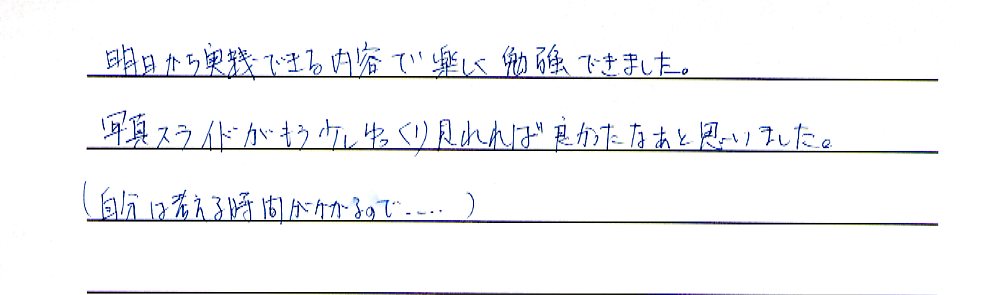 明日から実践できる内容で楽しく勉強できました。
写真スライドがもう少しゆっくり見れれば良かったなぁと思いました。
(自分は考える時間がかかるので.....)